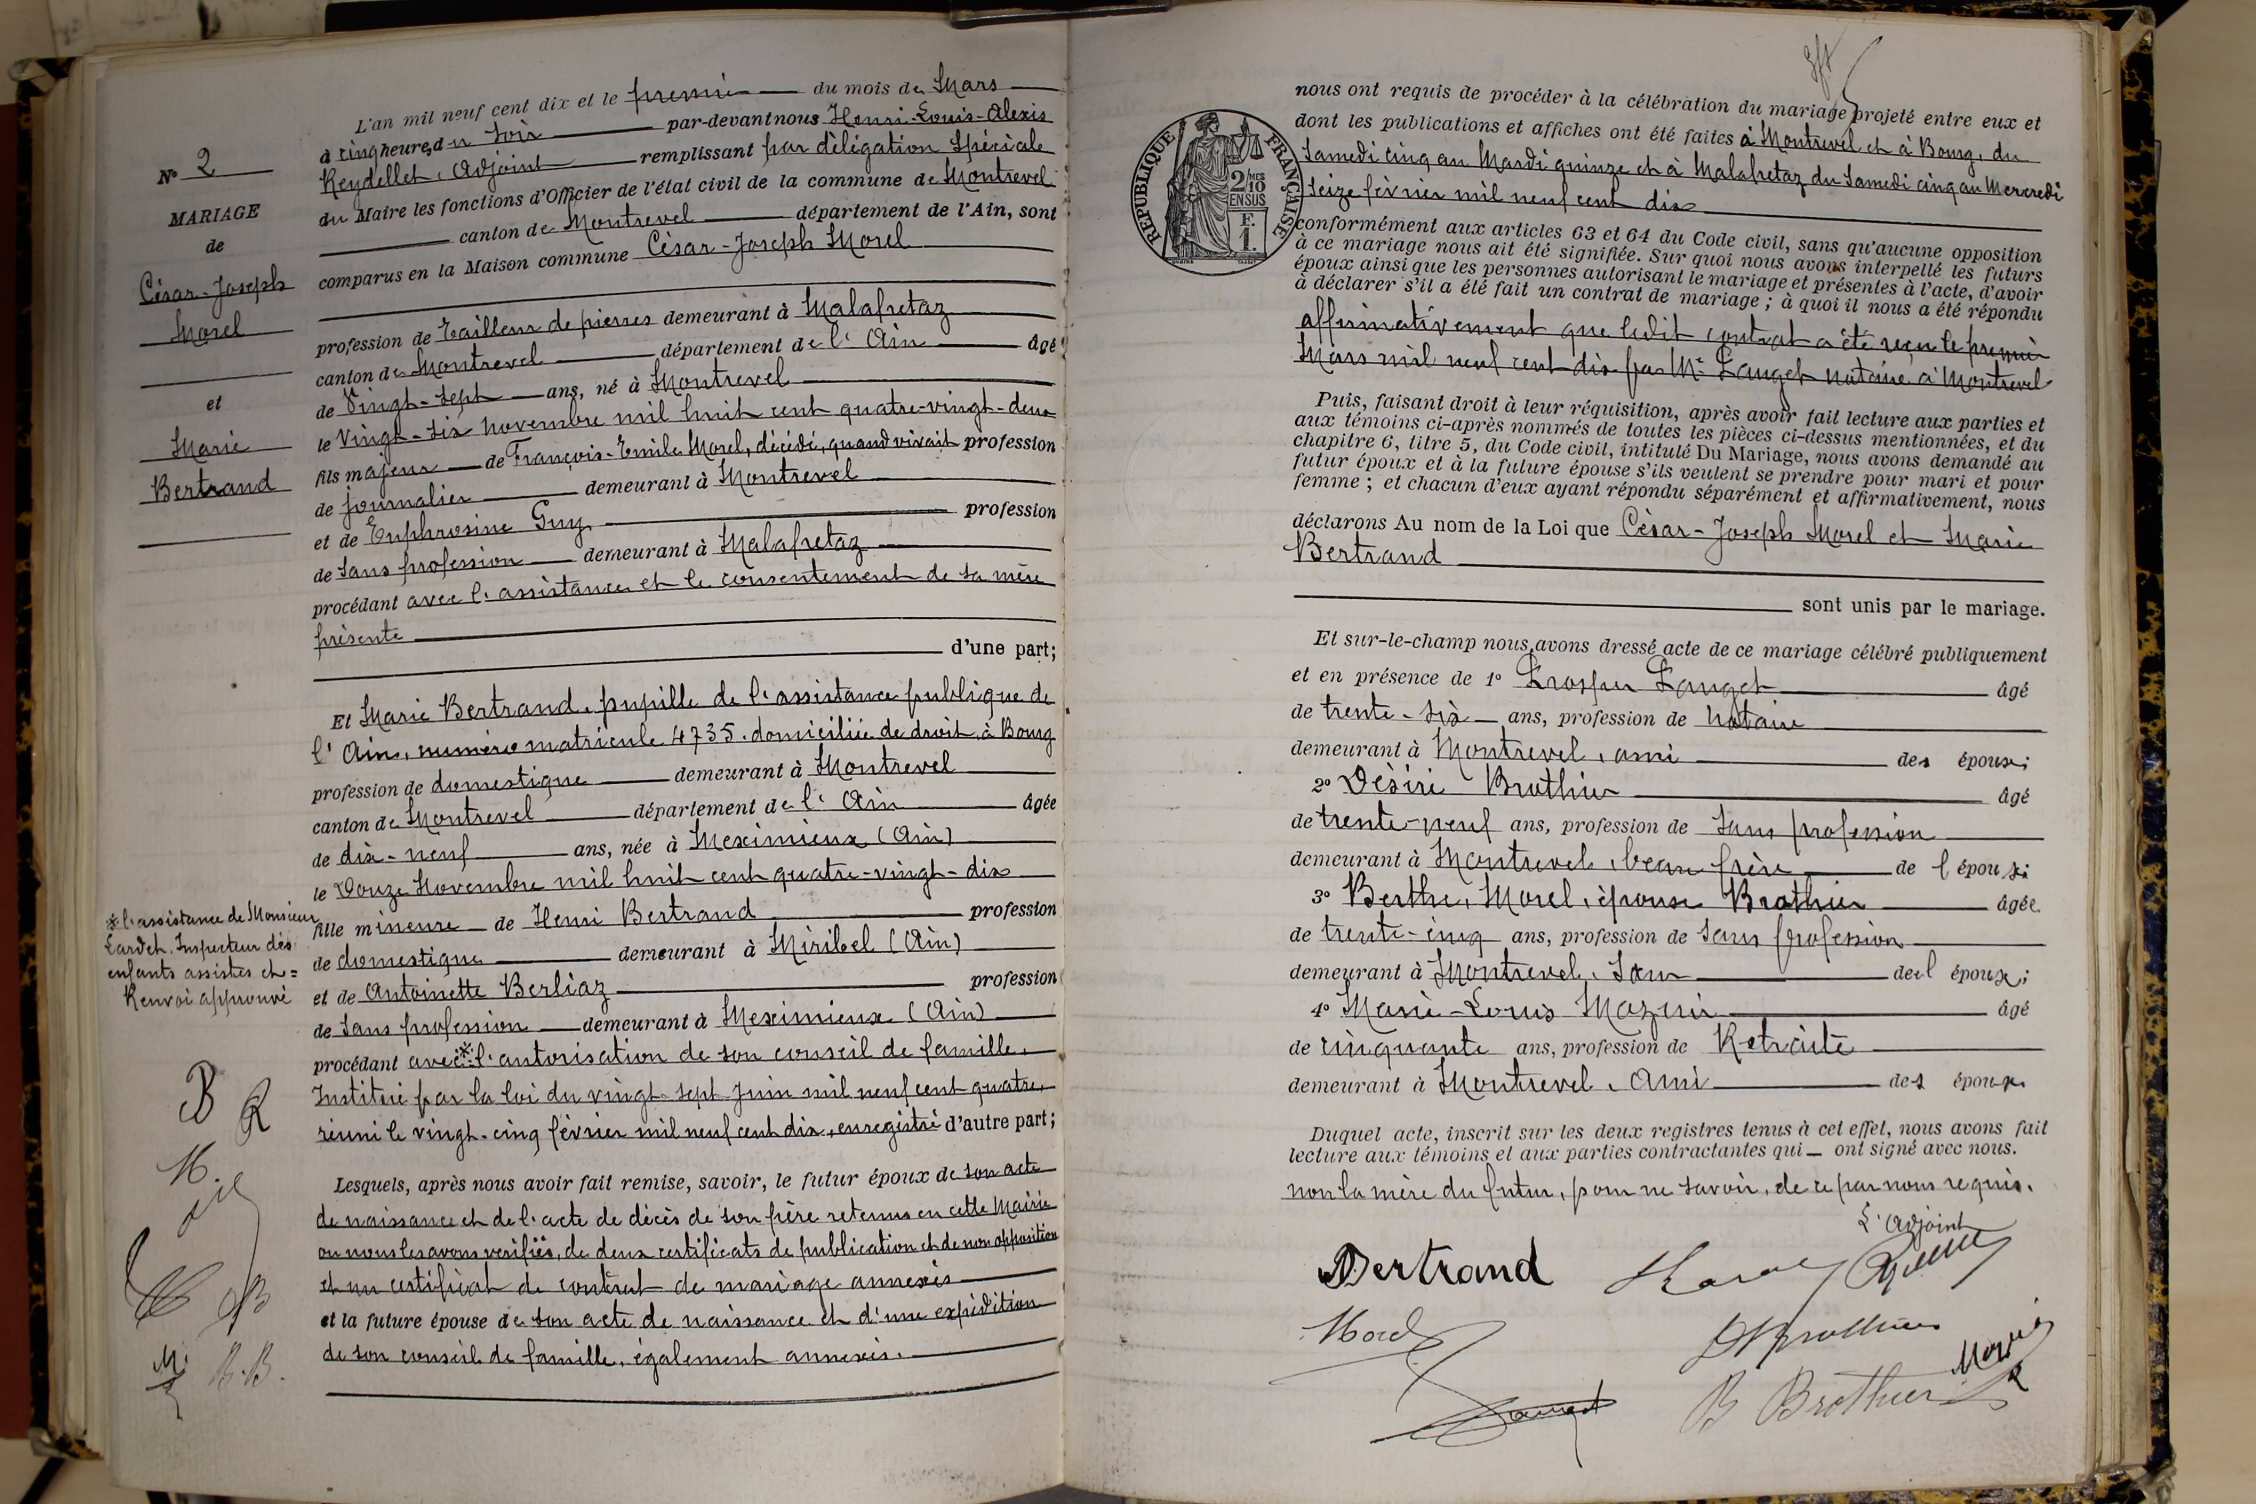 L'an mil neuf cent dix et le premier du mois de Mars
à cinq heures du soir par-devant nous Henri-Louis-Alexis
Reydellet, Adjoint remplissant par délégation spéciale
du Maire les fonctions d'Officier de l'état civil de la commune de Montrevel
canton de Montrevel département de l'Ain, sont
comparus en la Maison commune César-Joseph Morel
profession de Tailleur de pierres demeurant à Malafretaz
canton de Montrevel département de l'Ain âgé
de Vingt-sept ans, né à Montrevel
le Vingt-six novembre mil huit cent quatre-vingt-deux
fils majeur de François-Emile Morel, décédé, quand vivait profession
de journalier demeurant à Montrevel
et de Euphrosine Guy profession
de sans profession demeurant à Malafretaz
procédant avec l'assistance et le consentement de sa mère
présente
d'une part;
Et Marie Bertrand, pupille de l'assistance publique de
l'Ain, numéro matricule 4735, domiciliée de droit à Bourg
profession de domestique demeurant à Montrevel
canton de Montrevel département de l'Ain âgée
de dix-neuf ans, née à Meximieux (Ain)
le Douze Novembre mil huit cent quatre-vingt-dix
fille mineure de Henri Bertrand profession
de domestique demeurant à Miribel (Ain)
et de Antoinette Berliaz profession
de sans profession demeurant à Meximieux (Ain)
procédant avec * l'autorisation de son conseil de famille,
Institué par la loi du vingt-sept Juin mil neuf cent quatre,
réuni le vingt-cinq février mil neuf cent dix, enregistré d'autre part;
Lesquels, après nous avoir fait remise, savoir, le futur époux de son acte
de naissance et de l'acte de décès de son père retenus en cette Mairie
ou nous les avons vérifiés, de deux certificats de publication et de non opposition
et un certificat de contrat de mariage annexés
et la future épouse de son acte de naissance et d'une expédition
de son conseil de famille, également annexés.
N° 2
MARIAGE
de
César-Joseph
Morel
et
Marie
Bertrand
* l'assistance de Monsieur
Lardet, Inspecteur des
enfants assistés et =
Renvoi approuvé
B R
M.
B
M. B.B.
RÉPUBLIQUE FRANÇAISE
2/10 MES
EN SUS
1 F.
nous ont requis de procéder à la célébration du mariage projeté entre eux et
dont les publications et affiches ont été faites à Montrevel et à Bourg, du
Samedi cinq au Mardi quinze et à Malafretaz du Samedi cinq au Mercredi
seize février mil neuf cent dix
conformément aux articles 63 et 64 du Code civil, sans qu'aucune opposition
à ce mariage nous ait été signifiée. Sur quoi nous avons interpellé les futurs
époux ainsi que les personnes autorisant le mariage et présentes à l'acte, d'avoir
à déclarer s'il a été fait un contrat de mariage ; à quoi il nous a été répondu
affirmativement que ledit contrat a été reçu le premier
Mars mil neuf cent dix par Me Lauget notaire à Montrevel
Puis, faisant droit à leur réquisition, après avoir fait lecture aux parties et
aux témoins ci-après nommés de toutes les pièces ci-dessus mentionnées, et du
chapitre 6, titre 5, du Code civil, intitulé Du Mariage, nous avons demandé au
futur époux et à la future épouse s'ils veulent se prendre pour mari et pour
femme ; et chacun d'eux ayant répondu séparément et affirmativement, nous
déclarons Au nom de la Loi que César-Joseph Morel et Marie
Bertrand
sont unis par le mariage.
Et sur-le-champ nous avons dressé acte de ce mariage célébré publiquement
et en présence de 1° Prosper Lauget âgé
de trente-six ans, profession de notaire
demeurant à Montrevel, ami des époux;
2° Désiré Brothier âgé
de trente-neuf ans, profession de sans profession
demeurant à Montrevel, beau frère de l'époux;
3° Berthe, Morel, épouse Brothier âgée
de trente-cinq ans, profession de sans profession
demeurant à Montrevel, sœur de l'époux;
4° Marie-Louis Mazuir âgé
de cinquante ans, profession de Retraité
demeurant à Montrevel, Ami des époux.
Duquel acte, inscrit sur les deux registres tenus à cet effet, nous avons fait
lecture aux témoins et aux parties contractantes qui ont signé avec nous.
non la mère du futur, pour ne savoir, de ce par nous requis.
L'Adjoint
Bertrand
Morel
Brothier
Lauget
B Brothier